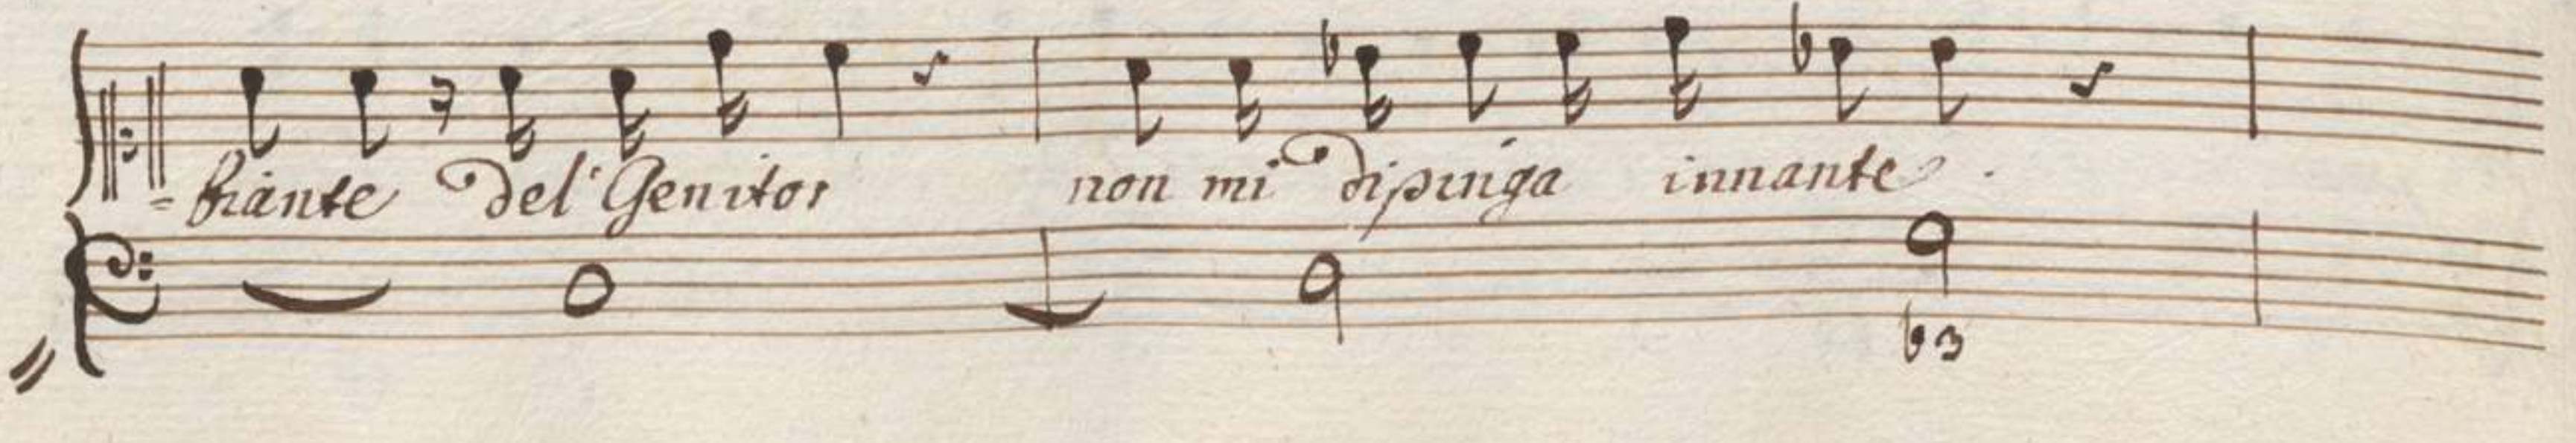 =briante del' Genitor non mi dipinga innante.
b3